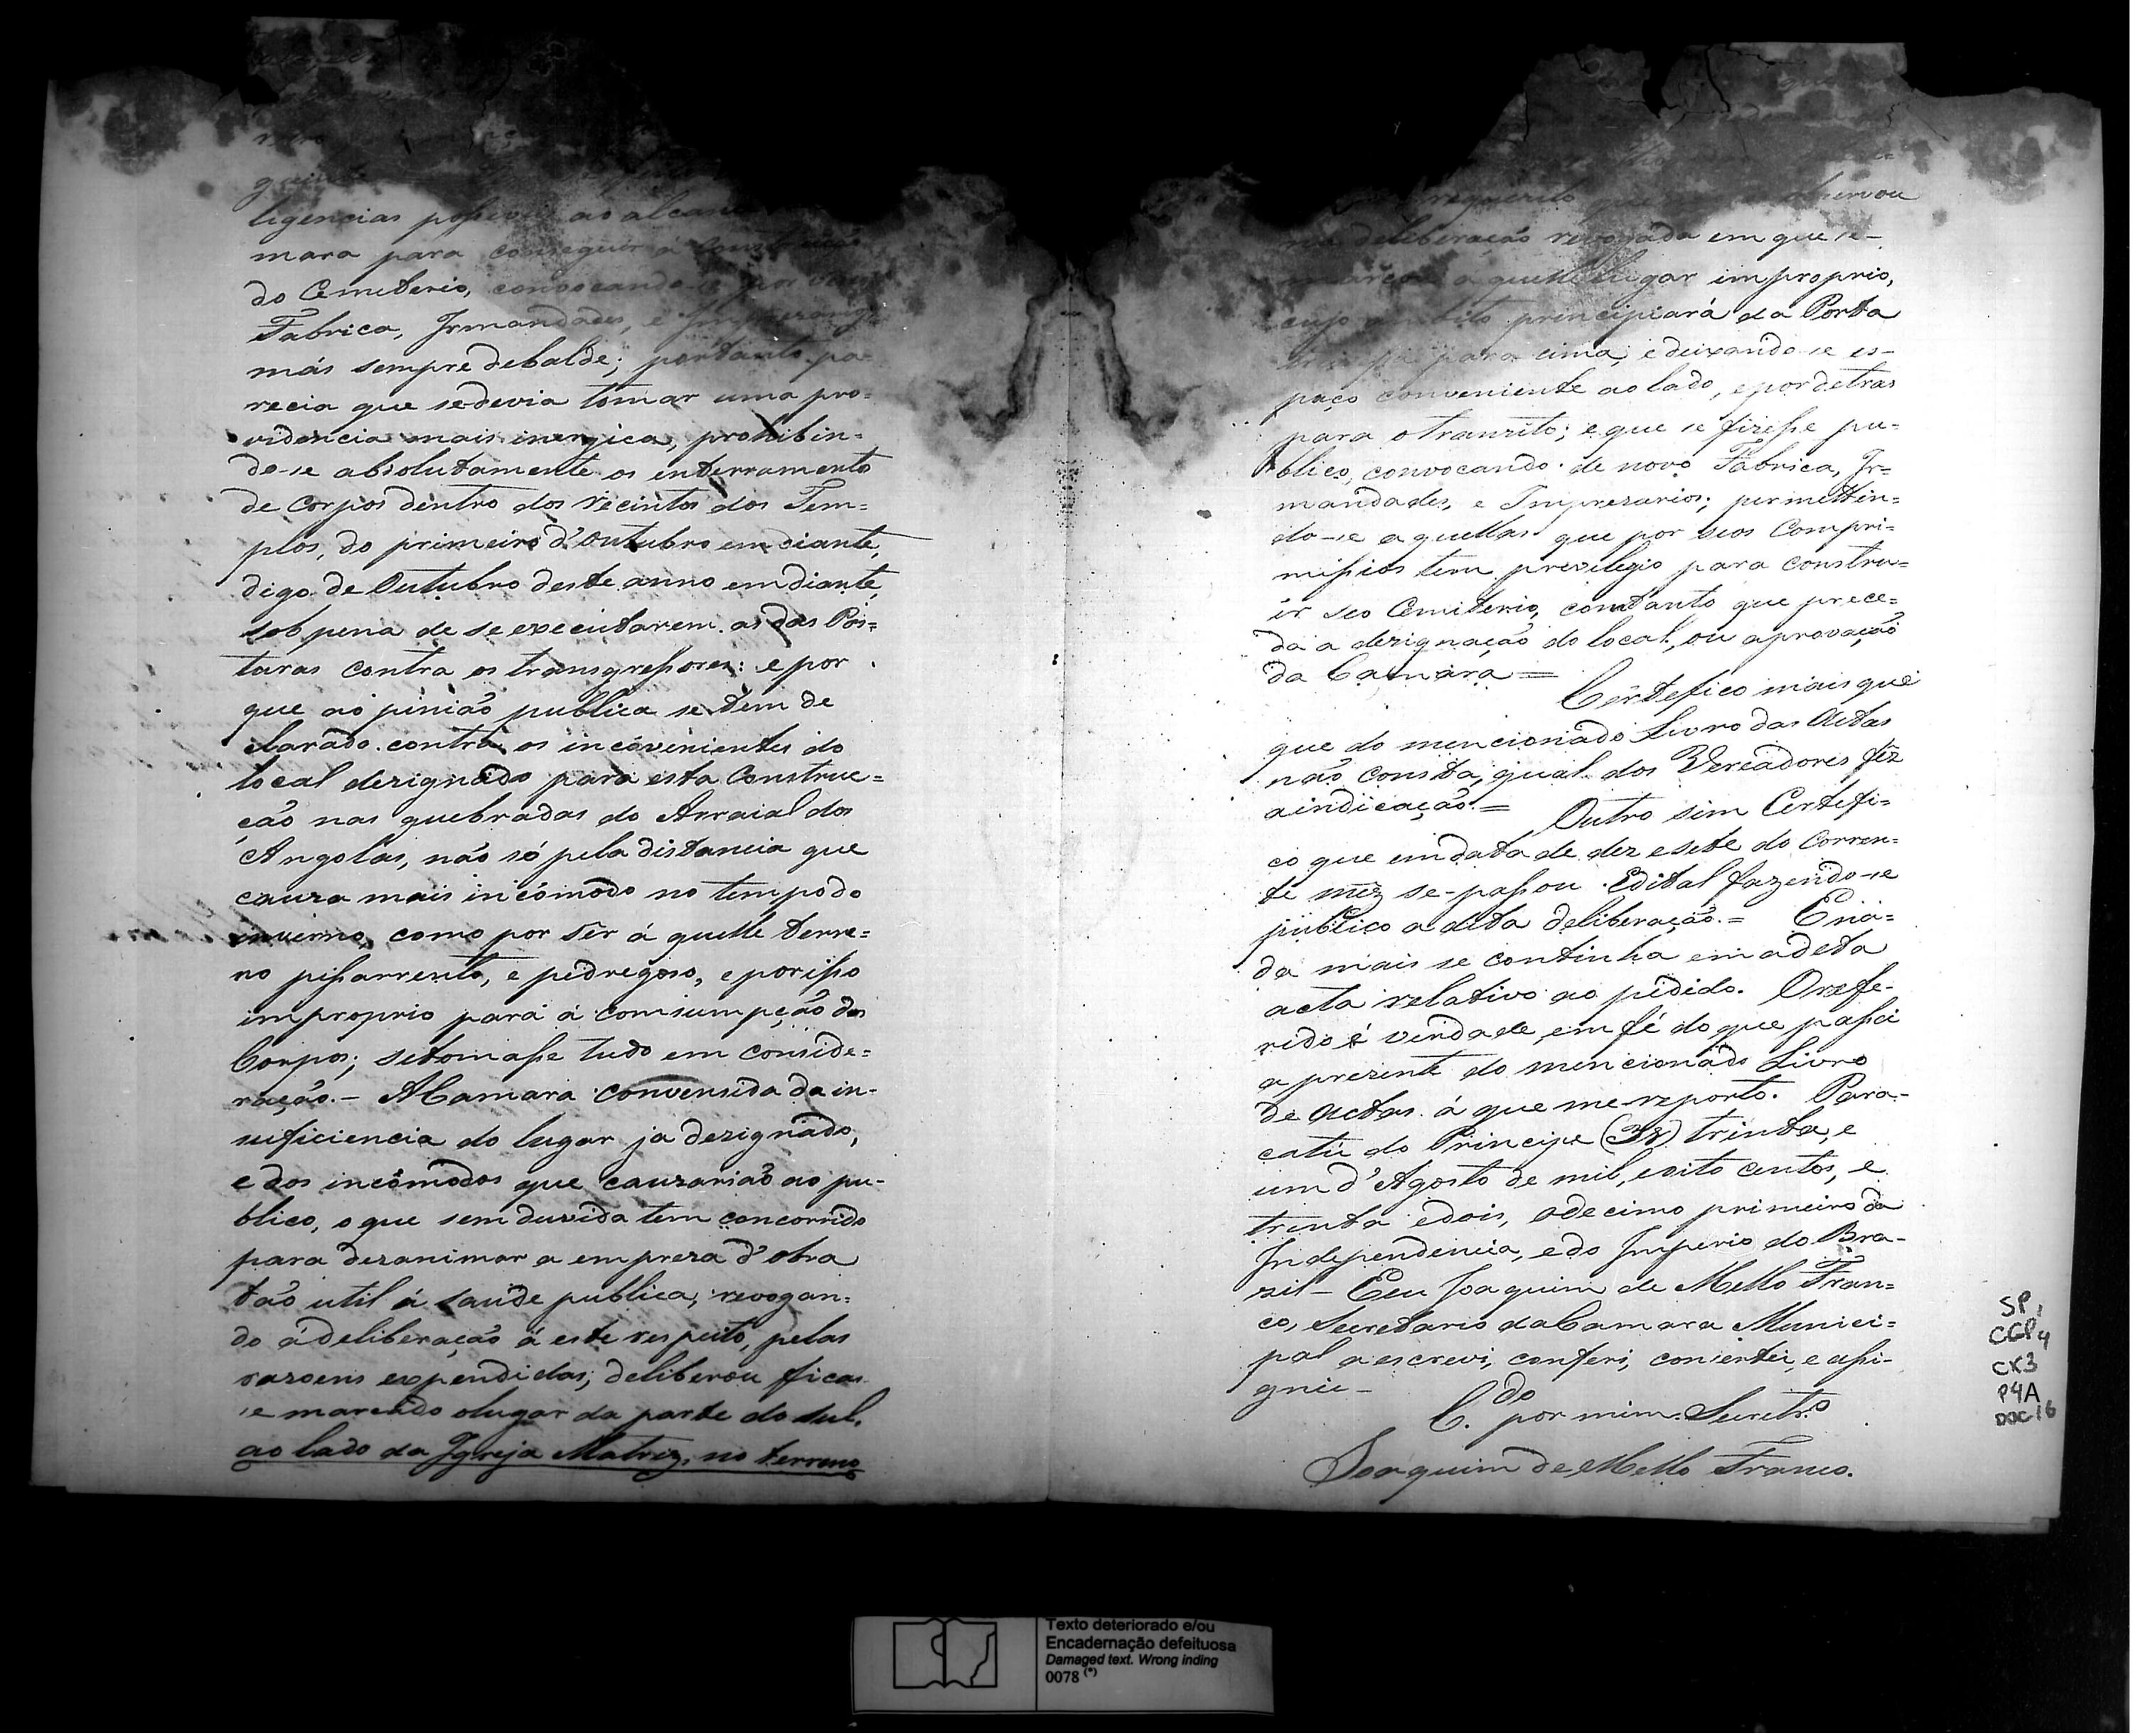 ligencias possiveis ao alcan
mara para conseguir a
do Cemeterio, convocando
Fabrica, Irmandades, e
más sempre debalde; portanto pa
recia que se devia tomar uma pro=
videncia mais inergica, prohibin=
do-se absolutamente os enterramento
de corpos dentro dos recintos dos Tem=
plos, do primeiro d'Outubro em diante,
digo de Outubro deste anno em diante,
sob pena de se executarem as das Pos=
turas contra os transgressores: e por
que a o pinião publica se tem de
clarado contra os incovenientes do
local dezignado para esta Construc=
ção nas quebradas do Arraial dos
Angolas, não só pela distancia que
cauza mais incômodo no tempo do
inverno, como por sêr á quelle terre=
no pissarrento, e pedregoso, e porisso
improprio para a comsumpção dos
Corpos; se tomasse tudo em conside=
ração. - A Camara convensida da in-
suficiencia do lugar ja dezignado,
e dos incômodos que cauzarião ao pu-
blico, o que sem duvida tem concorrido
para dezanimar a empreza d'obra
tão util á saude publica, revogan=
do á deliberação á este respeito, pelas
razoens expendidas; deliberou ficas
se marcado o lugar da parte do sul,
ao lado da Igreja Matriz, no terreno
requerito
deliberação revogada em que se-
á quelle lugar improprio,
cujo principiará da Porta
para cima, e deixando se es-
paço conveniente ao lado, e por detras
para o tranzito; e que se fizesse pu=
blico, convocando de novo Fabrica, Ir=
mandades, e Imprezarios; permettin=
do-se a quellas que por seos Compri=
missios tem previlegio para constru=
ir seo Cemiterio, comtanto que prece=
da a dezignação do local, ou aprovação
da Camara =
Certefico mais que
que do mencionado Livro das Actas
não consta, qual dos Vereadores fêz
a indicação. = Outro sim Certefi=
co que em data de dez e sete do Corren=
te mêz se-passou Edital fazendo-se
publico a dita deliberação. = E na=
da mais se continha em a deta
acta relativo ao pedido. O refe-
rido é verdade, em fé do que passei
a prezente do mencionado Livro
de Actas á que me reporto. Para-
catú do Principe (31) trinta, e
um d'Agosto de mil, oito centos, e
trinta e dois, o decimo primeiro da
Independencia, e do Imperio do Bra-
zil - E eu Joaquim de Mello Fran=
co, Secretario da Camara Munici=
pal a escrevi, conferi, consertei, e assi-
gnei -
C.do por mim Secretr.o
Joaquim de Mello Franco.
SP,
CGP4
CX3
P4A
DOC16
Texto deteriorado e/ou
Encadernação defeituosa
Damaged text. Wrong inding
0078 (*)